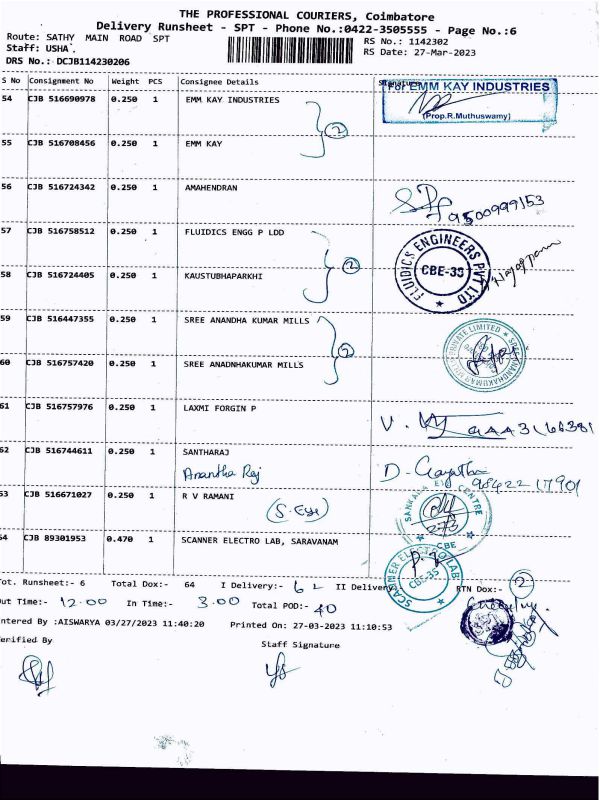 THE PROFESSIONAL COURIERS, Coimbatore
Delivery Runsheet - SPT - Phone No.:0422-3505555 - Page No.:6
Route: SATHY MAIN ROAD SPT
RS No.: 1142302
Staff: USHA .
RS Date: 27-Mar-2023
DRS No.: DCJB114230206
S No Consignment No Weight PCS Consignee Details Signature
54 CJB 516690978 0.250 1 EMM KAY INDUSTRIES
For EMM KAY INDUSTRIES
(Prop.R.Muthuswamy)
2
55 CJB 516708456 0.250 1 EMM KAY
56 CJB 516724342 0.250 1 AMAHENDRAN
9500999153
57 CJB 516758512 0.250 1 FLUIDICS ENGG P LDD
FLUIDICS ENGINEERS PVT LTD
CBE-35
2
58 CJB 516724405 0.250 1 KAUSTUBHAPARKHI
59 CJB 516447355 0.250 1 SREE ANANDHA KUMAR MILLS
2
60 CJB 516757420 0.250 1 SREE ANADNHAKUMAR MILLS
61 CJB 516757976 0.250 1 LAXMI FORGIN P
62 CJB 516744611 0.250 1 SANTHARAJ
Anantha Raj
D. Gayathri
98422 17901
63 CJB 516671027 0.250 1 R V RAMANI
(S. Eye)
SANKARA EYE CENTRE
CBE
64 CJB 89301953 0.470 1 SCANNER ELECTRO LAB, SARAVANAM
SCANNER ELECTRO LAB
CBE-35
Tot. Runsheet:- 6 Total Dox:- 64 I Delivery:- 62 II Delivery RTN Dox:- 2
Out Time:- 12.00 In Time:- 3.00 Total POD:- 40
Entered By :AISWARYA 03/27/2023 11:40:20 Printed On: 27-03-2023 11:10:53
Verified By Staff Signature